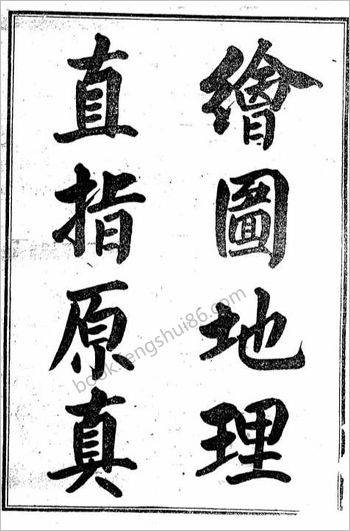 繪圖地理
直指原真
book.fengshui86.com